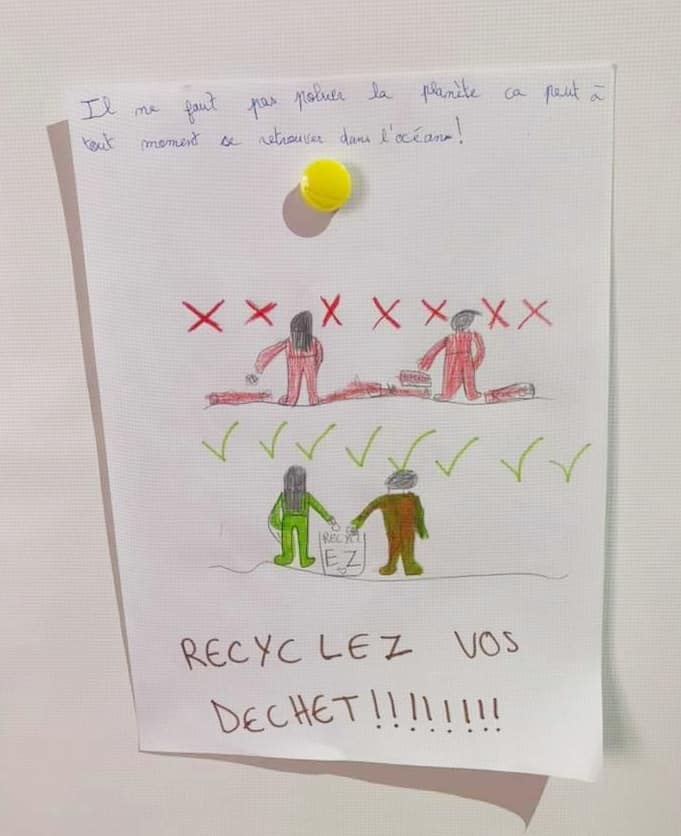 Il ne faut pas poluer la planète ca peut à
tout moment se retrouver dans l'océan!
RECYCL
EZ
RECYCLEZ VOS
DECHET!!!!!!!!!